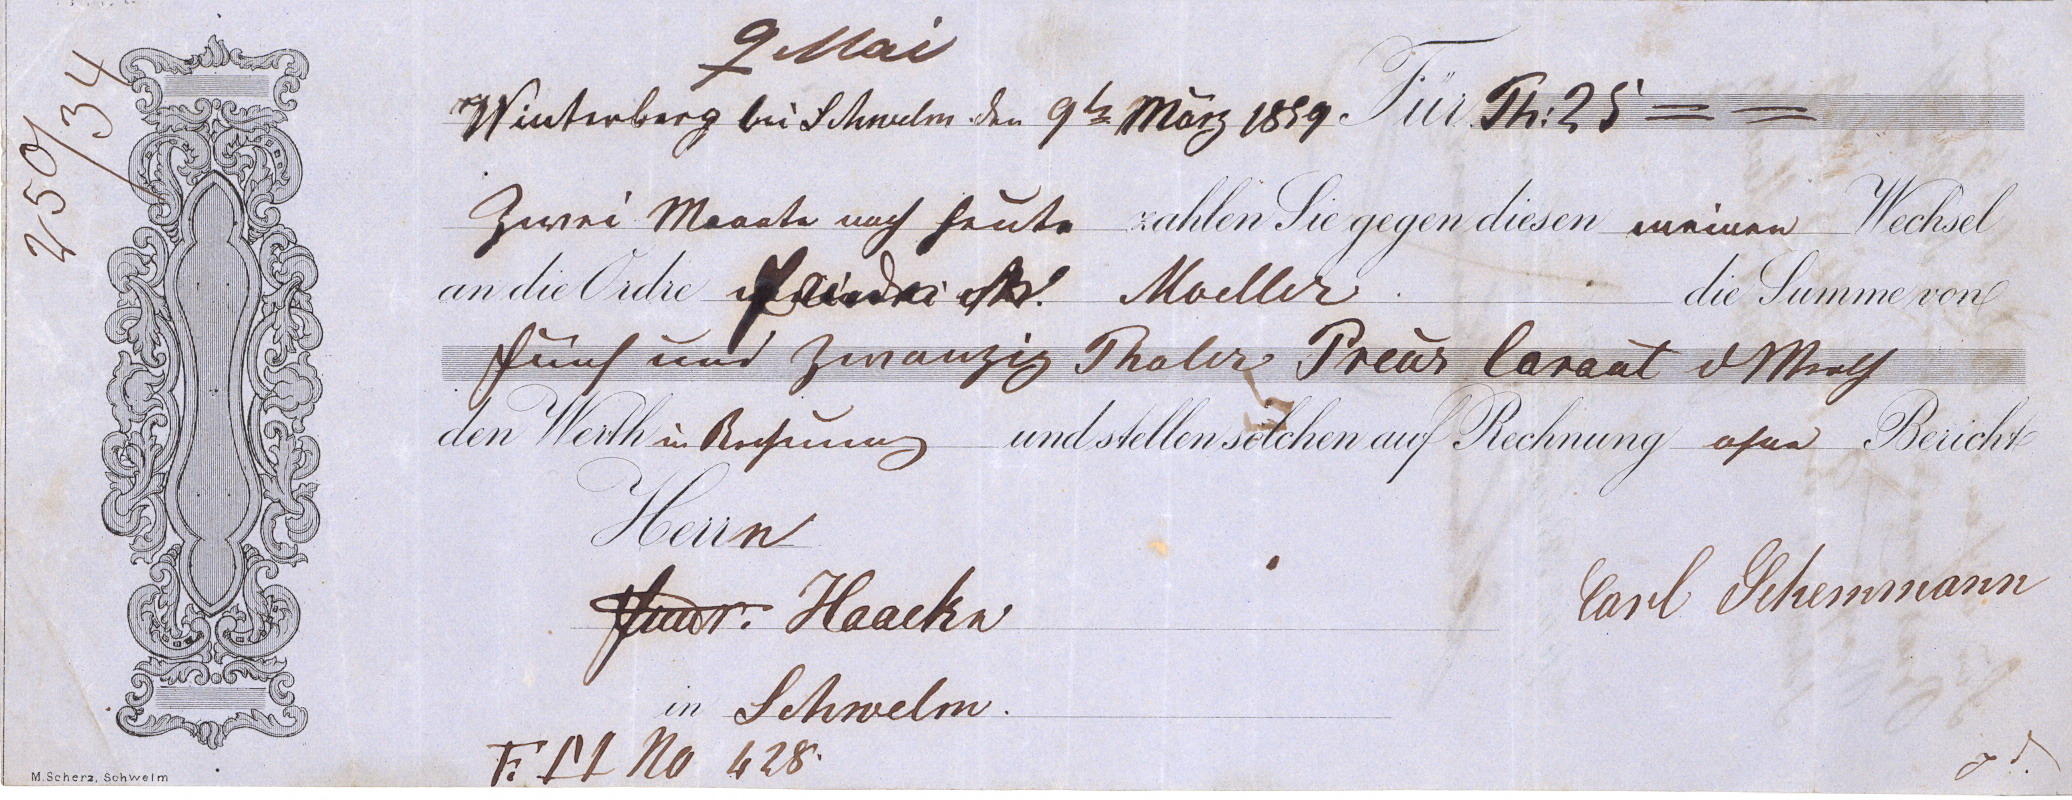 250/34
9 Mai
Winterberg bei Schwelm den 9ts März 1859. Für Th: 25
Zwei Monate nach heute zahlen Sie gegen diesen meinen Wechsel
an die Ordre Friedrich Moeller die Summe von
fünf und zwanzig Thaler Preus Coraut d Werth
den Werth in Rechnung und stellen solchen auf Rechnung ohne Bericht
Herrn
Haacke
Carl Schemmann
in Schwelm.
No 428.
M. Scherz, Schwelm